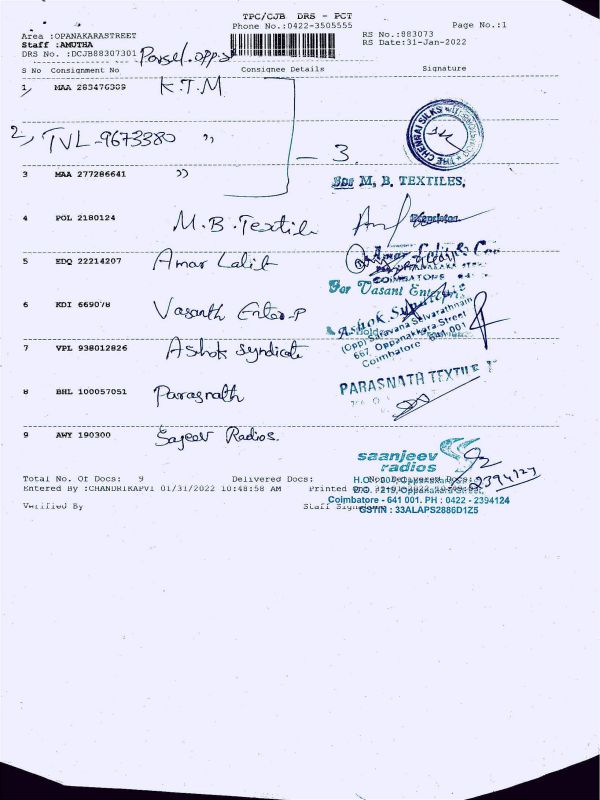 TPC/CJB DRS - PCT
Phone No.:0422-3505555
Page No.:1
Area :OPANAKARASTREET
Staff :AMUTHA
DRS No. :DCJB88307301
RS No.:883073
RS Date:31-Jan-2022
S No Consignment No Consignee Details Signature
1 MAA 283476389 K.T.M
2, TVL-9673380 ,,
3 MAA 277286641 ,,
- 3.
THE CHENNAI SILKS
For M. B. TEXTILES,
4 POL 2180124 M.B.Textile
Proprietor
5 EDQ 22214207 Amar Lalit
COIMBATORE
For Vasant Enterpris
6 KDI 669078 Vasanth Enter-P
Ashok Syndicate
(Opp) Saravana Selvarathnam
667, Oppanakkara Street
Coimbatore 641 001
7 VPL 938012826 Ashok Syndicate
PARASNATH TEXTILE
8 BHL 100057051 Parasnath
9 AWY 190300 Sajeev Radios.
saanjeev
radios
2394124
Total No. Of Docs: 9 Delivered Docs:
Entered By :CHANDRIKAPVI 01/31/2022 10:48:58 AM Printed
Coimbatore - 641 001. PH : 0422 - 2394124
Verified By Staff
GSTIN : 33ALAPS2886D1Z5